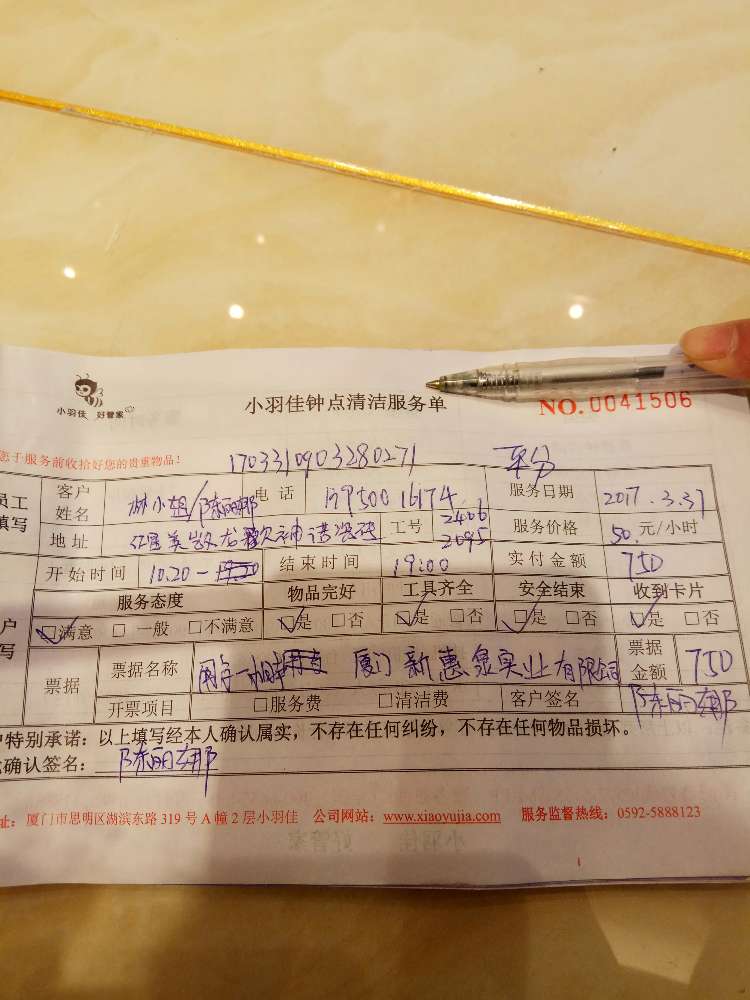 小羽佳 好管家
小羽佳钟点清洁服务单
NO.0041506
您于服务前收拾好您的贵重物品!
1703310903280271 平分
员工填写 客户姓名 林小姐/陈丽娜 电话 服务日期 2017.3.31
地址 工号 2406 2695 服务价格 50 元/小时
开始时间 10:20 结束时间 19:00 实付金额 750
服务态度 物品完好 工具齐全 安全结束 收到卡片
户写 ☑满意 □ 一般 □不满意 ☑是 □否 ☑是 □否 ☑是 □否 ☑是 □否
票据 票据名称 厦门新惠泉实业有限公司 票据金额 750
开票项目 □服务费 □清洁费 客户签名 陈丽娜
户特别承诺：以上填写经本人确认属实，不存在任何纠纷，不存在任何物品损坏。
确认签名： 陈丽娜
址：厦门市思明区湖滨东路 319 号 A 幢 2 层小羽佳 公司网站：www.xiaoyujia.com 服务监督热线：0592-5888123